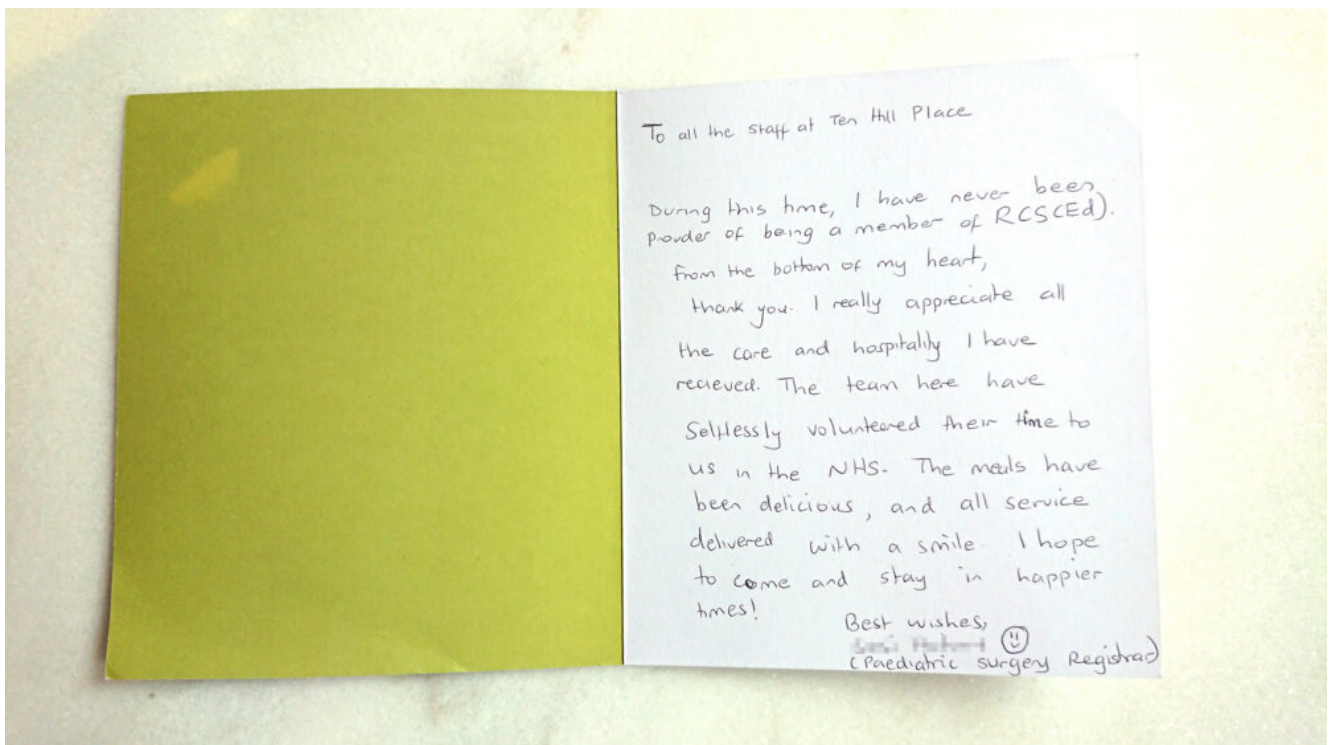 To all the staff at Ten Hill Place
During this time, I have never been
prouder of being a member of RCSCEd).
from the bottom of my heart,
thank you. I really appreciate all
the care and hospitality I have
recieved. The team here have
Selflessly volunteered their time to
us in the NHS. The meals have
been delicious, and all service
delivered with a smile. I hope
to come and stay in happier
times!
Best wishes,
(Paediatric surgery Registrar)